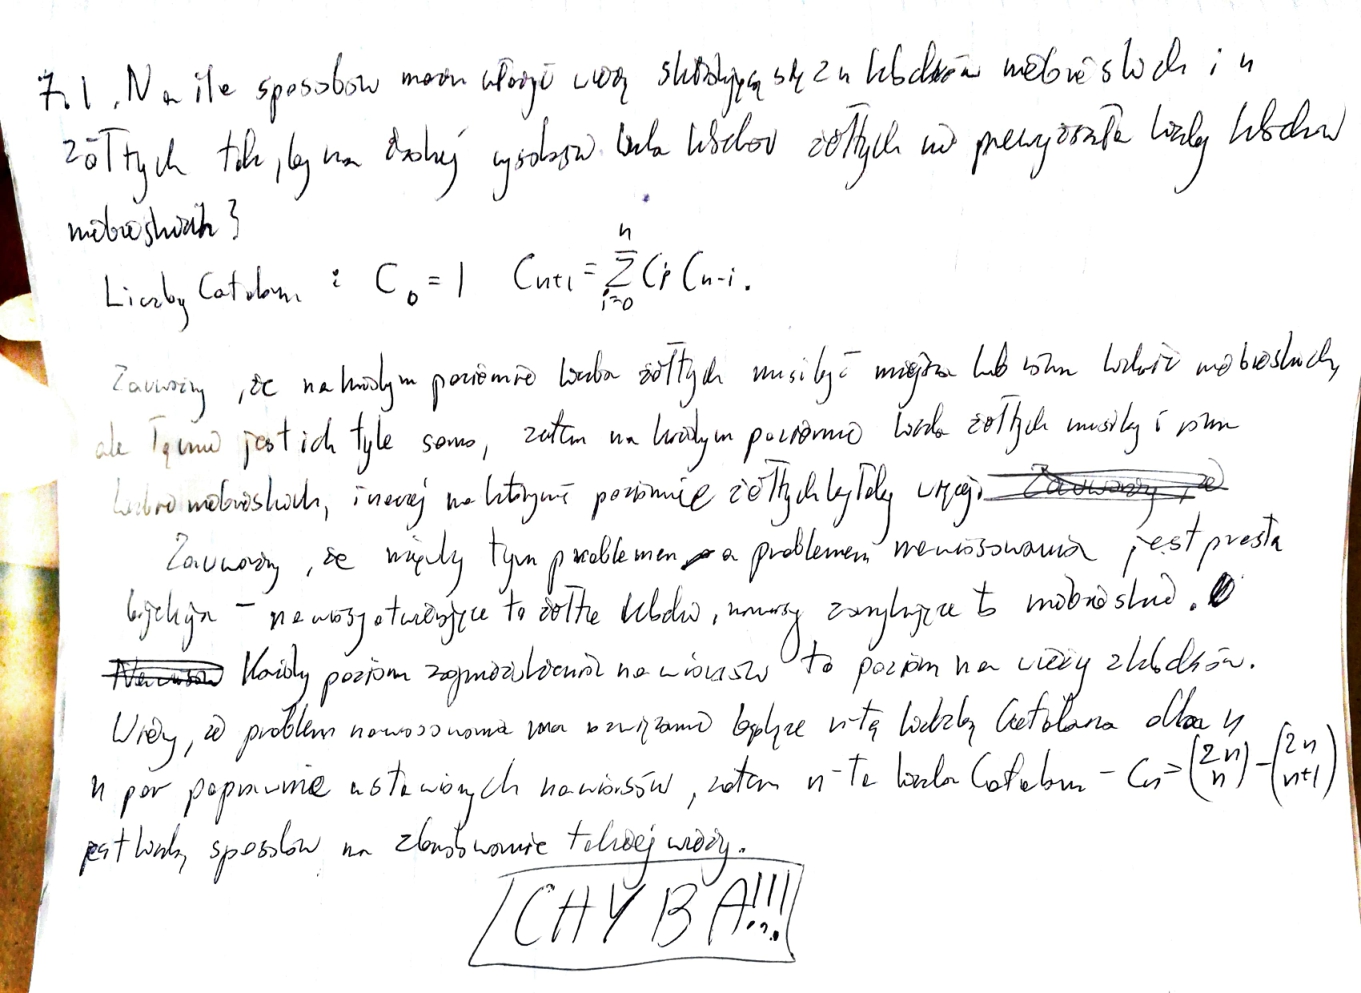 7.1. Na ile sposobów można ułożyć wieżę składającą się z n klocków niebieskich i n
żółtych tak, by na żadnej wysokości liczba klocków żółtych nie przewyższała liczby klocków
niebieskich?
Liczby Catalana : C₀ = 1 Cₙ₊₁ = Σᵢ₌₀ⁿ Cᵢ Cₙ₋ᵢ.
Zauważmy, że na każdym poziomie liczba żółtych musi być mniejsza lub równa liczbie niebieskich,
ale łącznie jest ich tyle samo, zatem na każdym poziomie liczba żółtych musi być równa
liczbie niebieskich, inaczej na którymś poziomie żółtych byłoby więcej.
Zauważmy, że między tym problemem a problemem nawiasowania jest prosta
bijekcja – nawiasy otwierające to żółte klocki, nawiasy zamykające to niebieskie.
Każdy poziom zagnieżdżenia nawiasów to poziom na wieży z klocków.
Wiemy, że problem nawiasowania ma rozwiązanie będące n-tą liczbą Catalana dla
n par poprawnie ustawionych nawiasów, zatem n-ta liczba Catalana – Cₙ = (2n n) - (2n n+1)
jest liczbą sposobów na zbudowanie takiej wieży.
CHYBA!!!